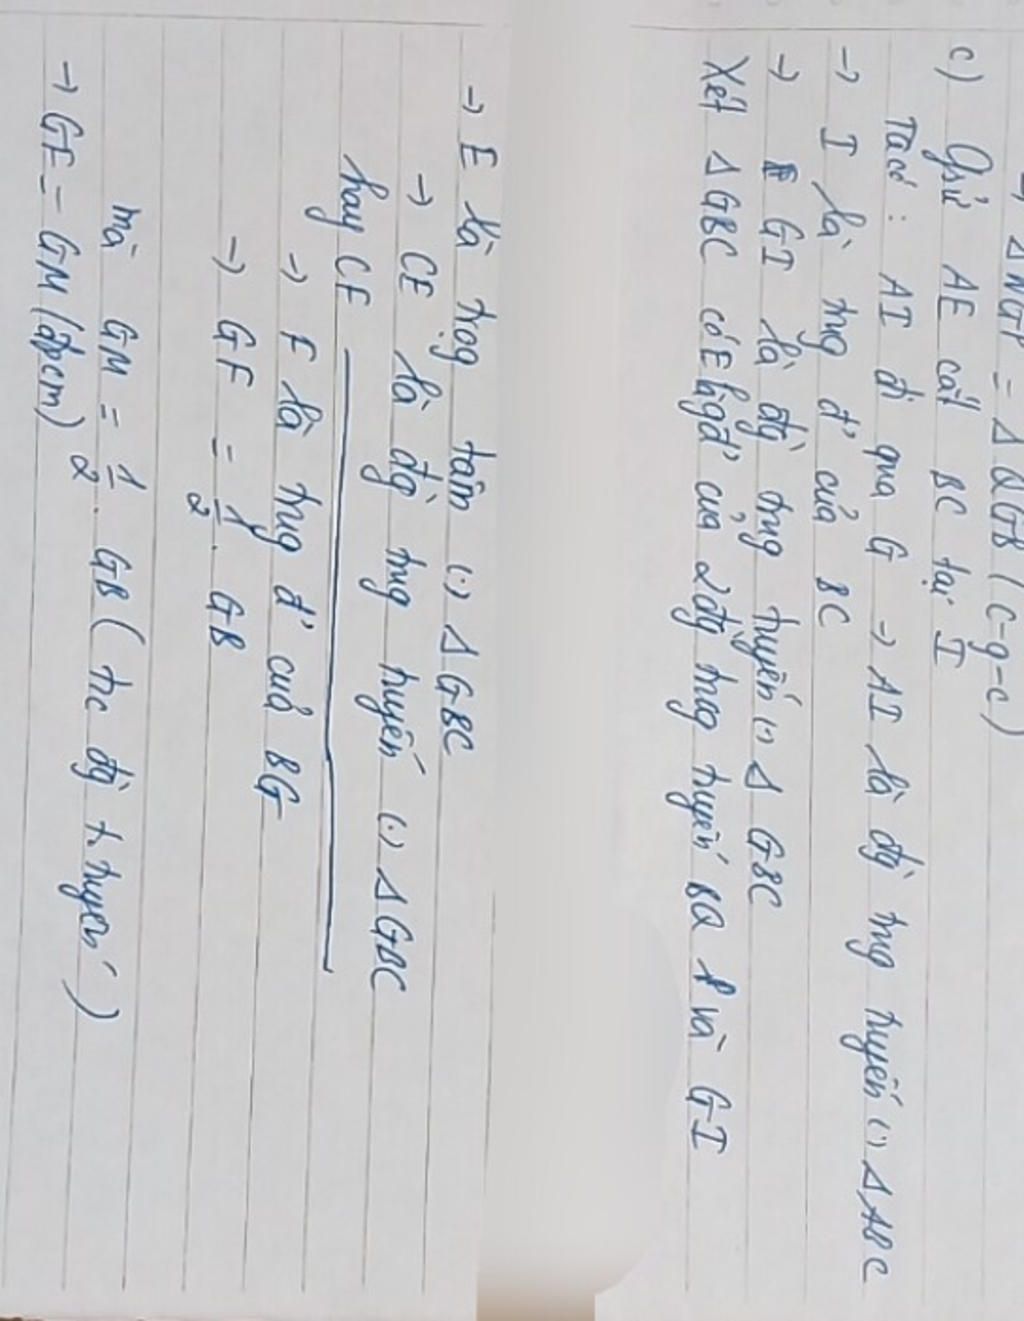 → ΔNGP = ΔQGB (c-g-c)
c) Gsử AE cắt BC tại I
Ta có: AI đi qua G → AI là đg trug tuyến (·) ΔABC
→ I là trug đ' của BC
→ GI là đg trug tuyến (·) Δ GBC
Xét Δ GBC có E là gđ' của 2 đg trug tuyến BQ và GI
→ E là trọg tâm (·) Δ GBC
→ CE là đg trug tuyến (·) Δ GBC
hay CF
→ F là trug đ' của BG
→ GF = 1/2 . GB
mà GM = 1/2 . GB ( t/c đg t.tuyến )
→ GF = GM (đpcm)